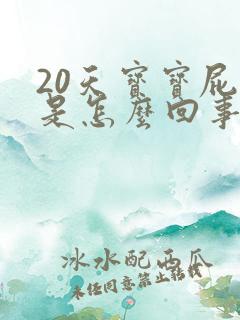 20天寶寶屁
是怎麼回事
冰水配西瓜
未经同意禁止转载